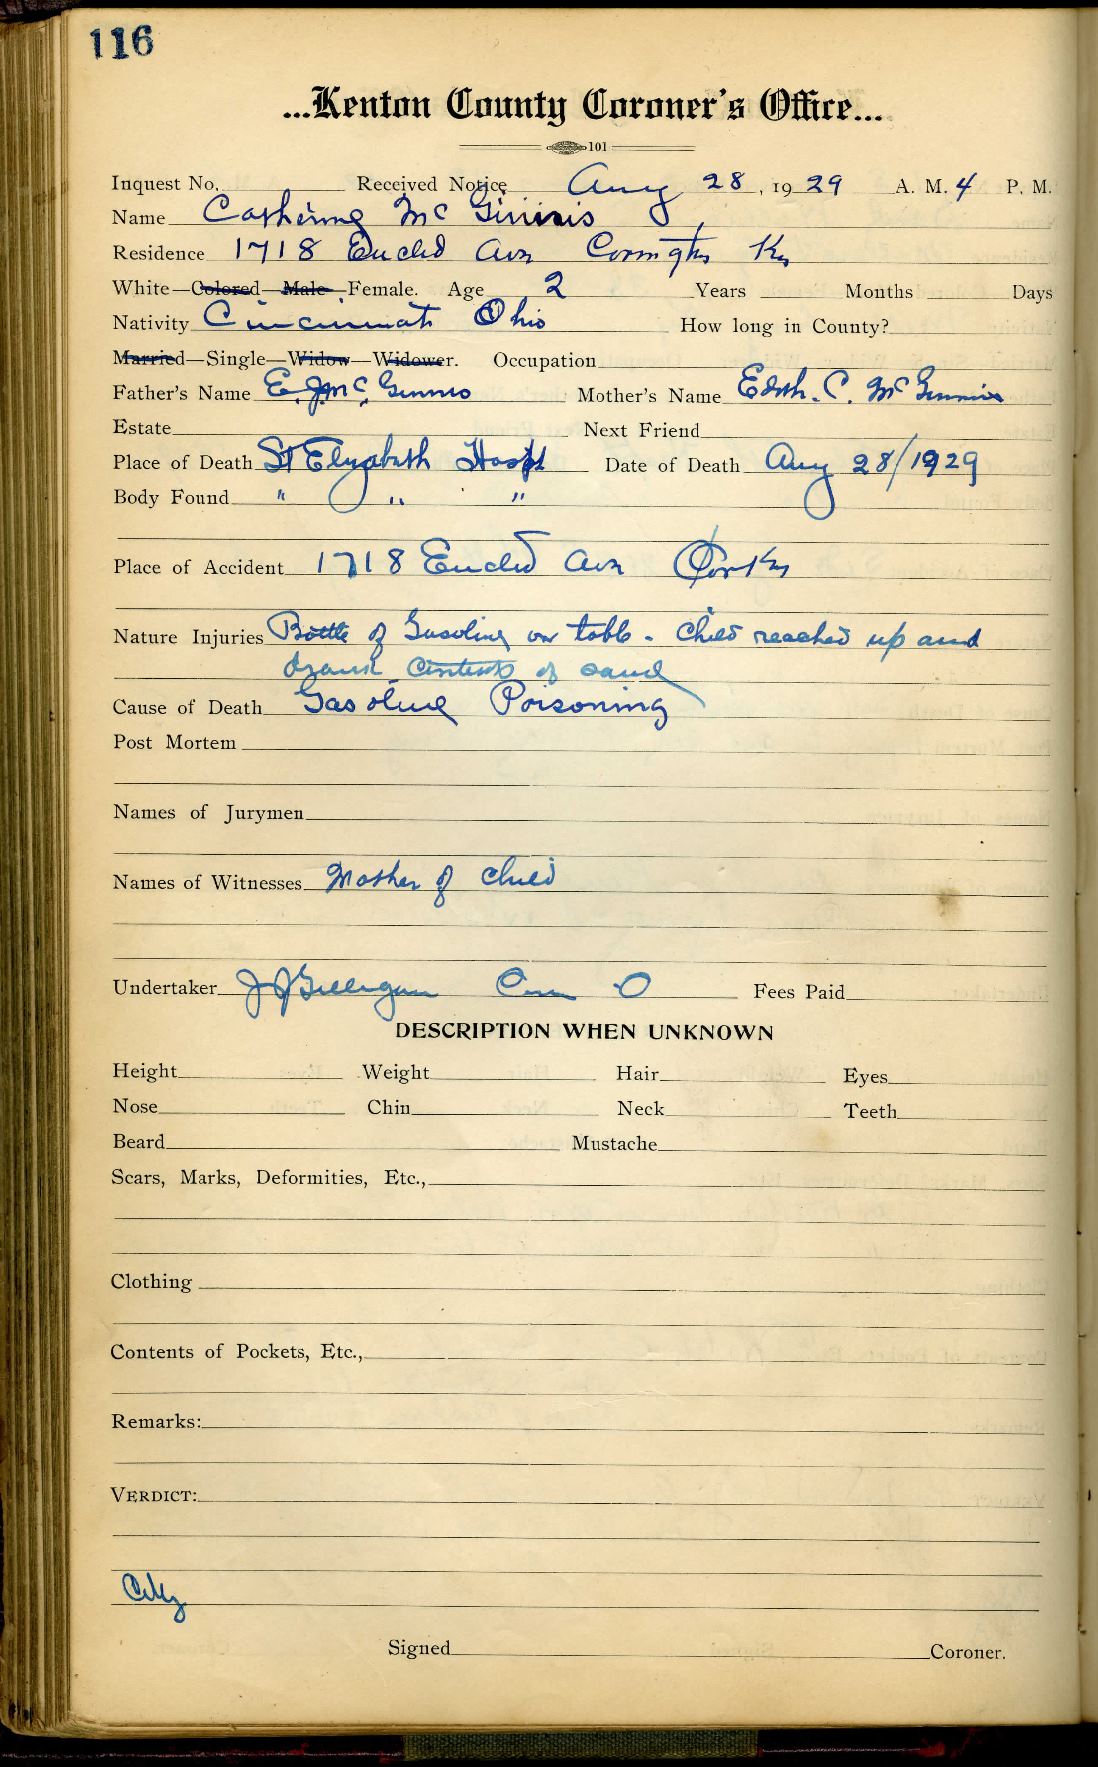 116
...Kenton County Coroner's Office...
101
Inquest No. Received Notice Aug 28, 1929 A. M. 4 P. M.
Name Catherine McGinnis
Residence 1718 Euclid Ave Covington Ky
White—Colored—Male—Female. Age 2 Years Months Days
Nativity Cincinnati Ohio How long in County?
Married—Single—Widow—Widower. Occupation
Father's Name E. J. McGinnis Mother's Name Edith. C. McGinnis
Estate Next Friend
Place of Death St Elizabeth Hospt Date of Death Aug 28/1929
Body Found " " "
Place of Accident 1718 Euclid Ave Cov Ky
Nature Injuries Bottle of Gasoline on table - Child reached up and
drank contents of same
Cause of Death Gasoline Poisoning
Post Mortem
Names of Jurymen
Names of Witnesses Mother of child
Undertaker J J Gilligan Cin O Fees Paid
DESCRIPTION WHEN UNKNOWN
Height Weight Hair Eyes
Nose Chin Neck Teeth
Beard Mustache
Scars, Marks, Deformities, Etc.,
Clothing
Contents of Pockets, Etc.,
Remarks:
VERDICT:
City
Signed Coroner.